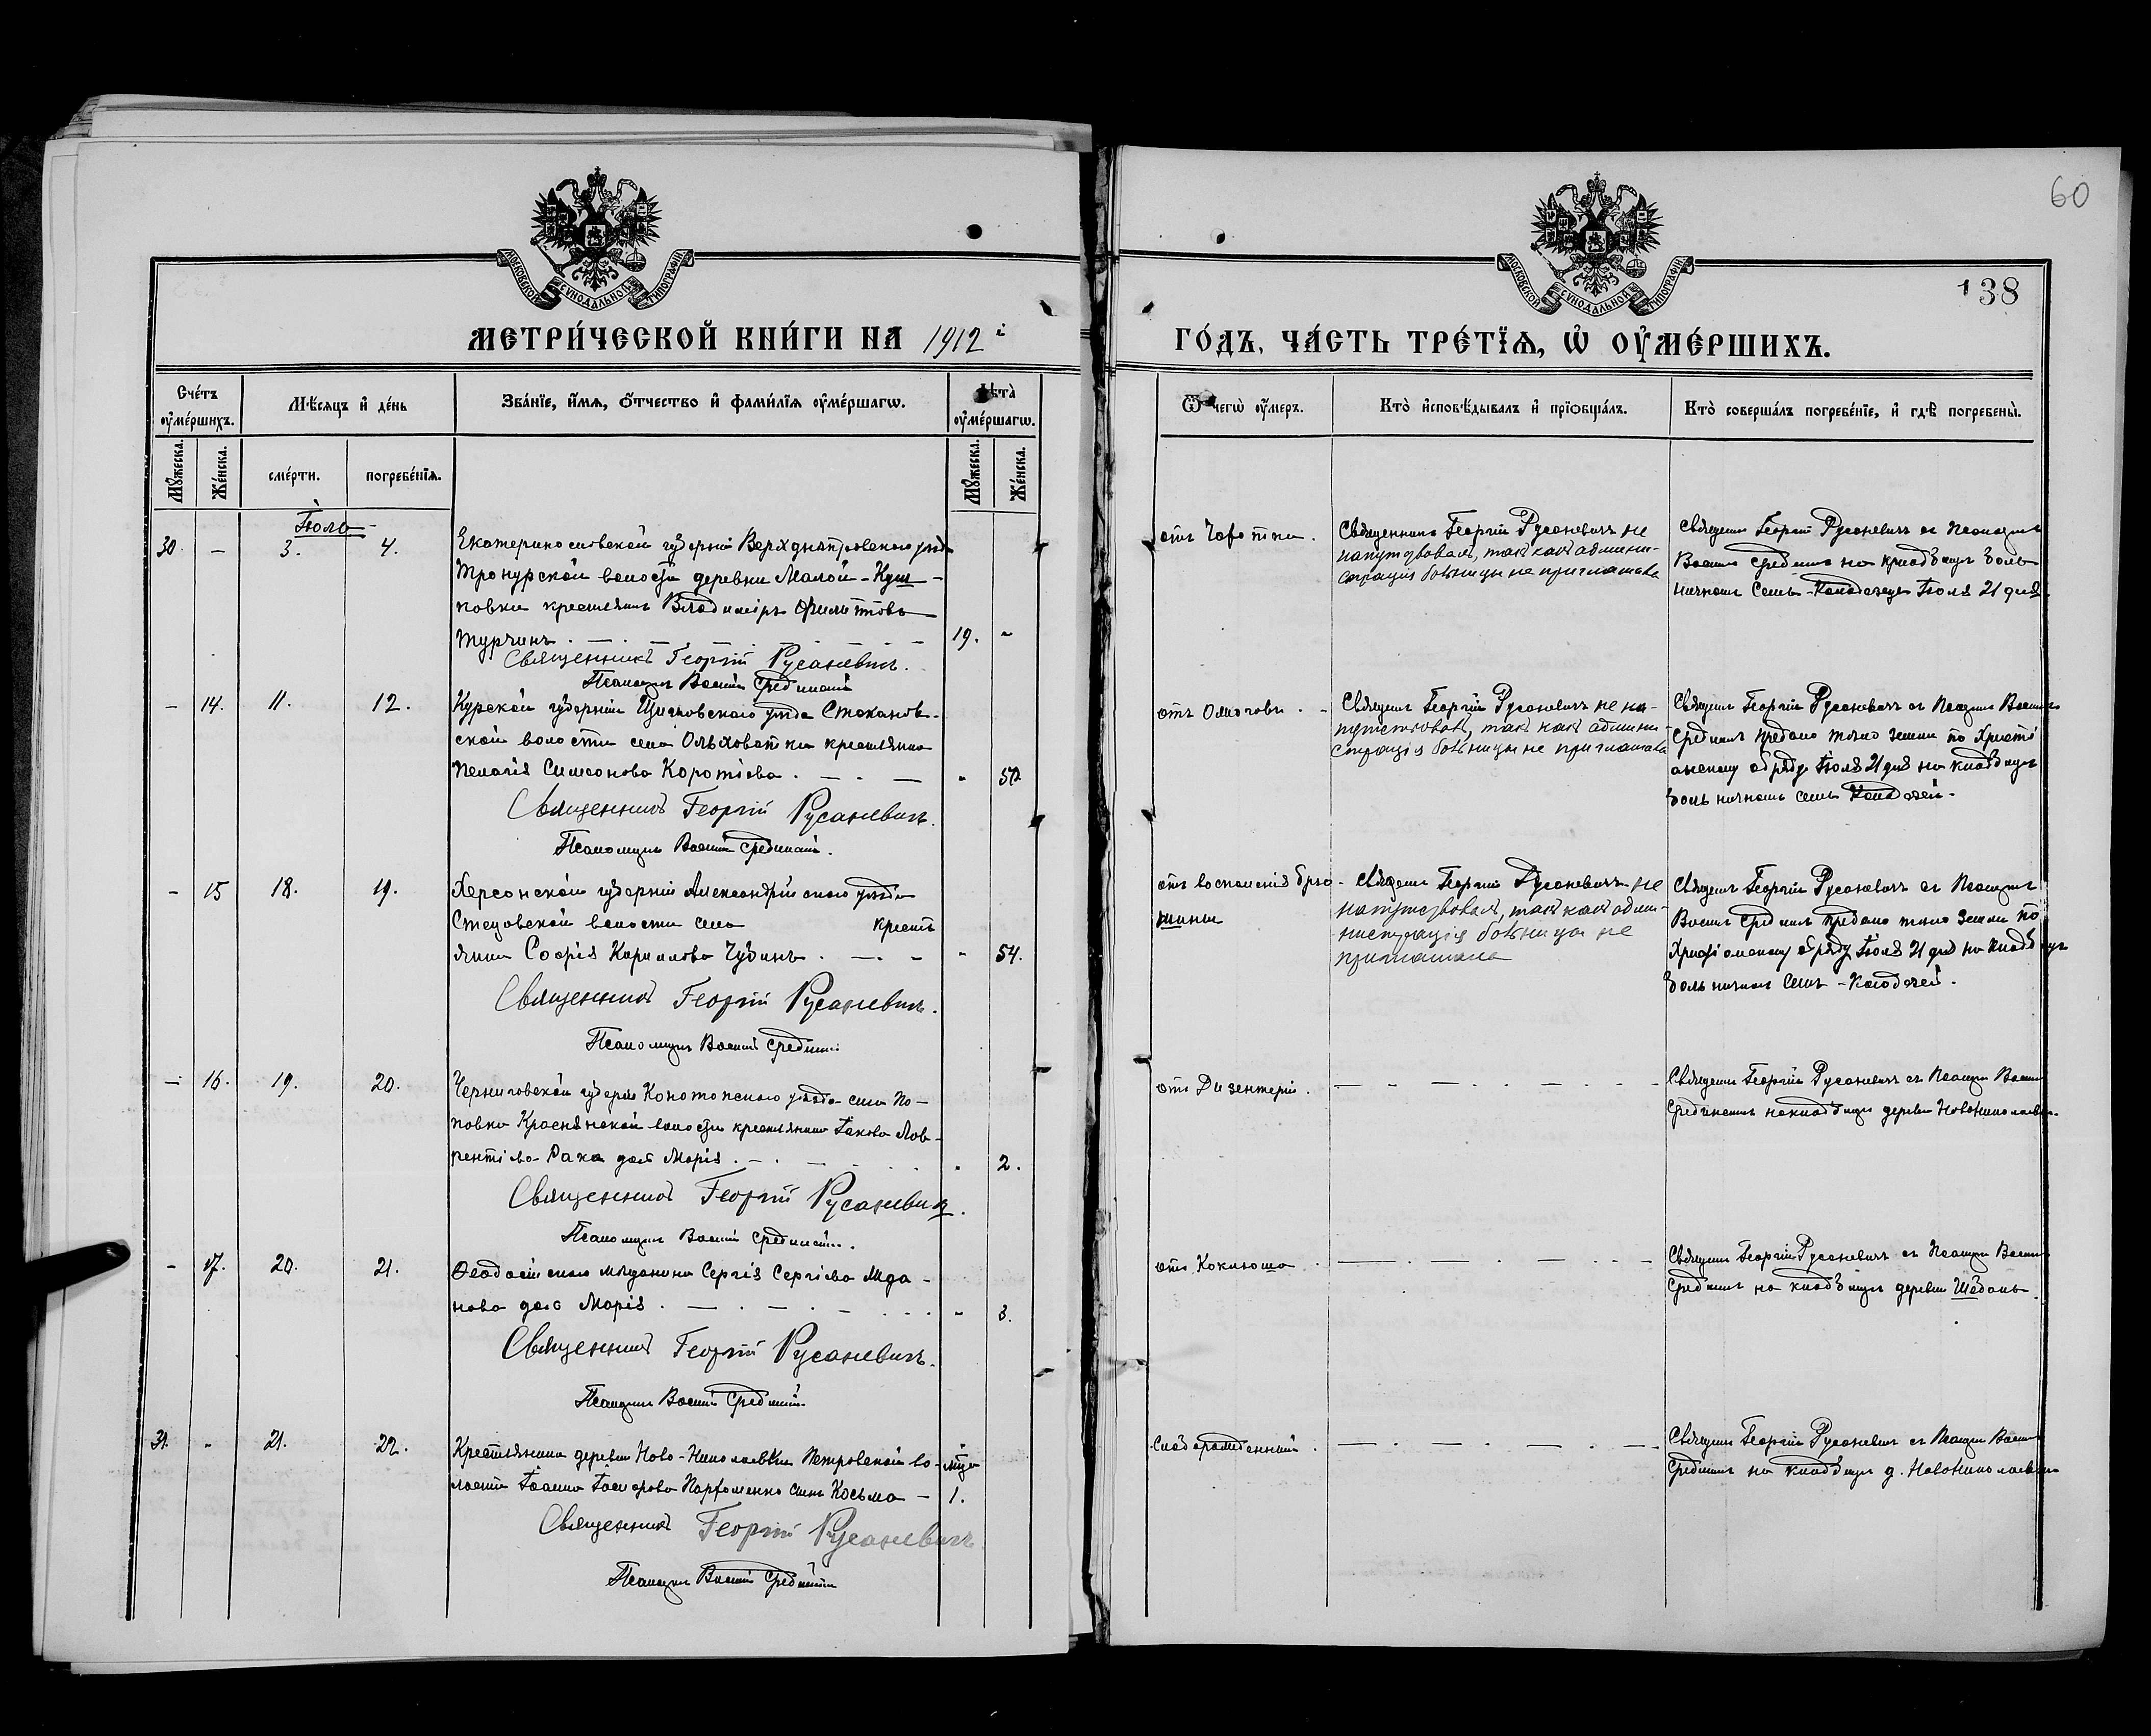 60
138
МОСКОВСКОЙ СѴНОДАЛЬНОЙ ТИПОГРАФІИ
МОСКОВСКОЙ СѴНОДАЛЬНОЙ ТИПОГРАФІИ
МЕТРИ́ЧЕСКОЙ КНИ́ГИ НА 1912 й
ГО́ДЪ, ЧА́СТЬ ТРЕ́ТЇѦ, Ѡ҆ ОУ҆МЕ́РШИХЪ.
Сче́тъ оу҆ме́ршихъ.
Мѣ́сяцъ и҆ де́нь
Зва́нїе, и҆́мѧ, ѻ҆́тчество и҆ фами́лїѧ оу҆ме́ршагѡ.
Лѣта̀ оу҆ме́ршагѡ.
Ѿ чегѡ̀ оу҆́меръ.
Кто̀ и҆сповѣ́дывалъ и҆ прїѻбща́лъ.
Кто̀ соверша́лъ погребе́нїе, и҆ гдѣ̀ погребены̀.
Мꙋ́жеска.
Же́нска.
сме́рти.
погребе́нїѧ.
Мꙋ́жеска.
Же́нска.
Іюль
30. – 3. 4.
Екатеринославской губерніи Верхднѣпровскаго уѣзда
волости деревни Малой-
повки крестьянинъ Владиміръ Филиповъ
Турчинъ 19. -
Священникъ Георгій Русаневичъ.
Псаломщикъ Василій Срединскій
отъ Чахотки.
Священникъ Георгій Русаневичъ не
напутствовалъ, такъ какъ админи-
страція больницы не приглашала
Священ Георгій Русаневичъ съ Псаломщик
Василі Средин на кладбищѣ боль
ничномъ Семь-Колодезей Іюля 21 дня.
– 14. 11. 12.
Курской губерніи Щигровскаго уѣзда Стаканов-
ской волости села Ольховатки крестьянка
Пелагія Симеонова Коротіева - 52
Священникъ Георгій Русаневичъ.
Псаломщикъ Василій Срединскій.
отъ
Священ Георгій Русаневичъ не на-
путствовалъ, такъ какъ админи-
страція больницы не приглашала
Священ Георгій Русаневичъ съ Псаломщ Василі
Средин предано тѣло земли по Христі
анскому обряду Іюля 21 дня на кладбищѣ
больничномъ Семь Колодезей.
– 15 18. 19.
Херсонской губерніи Александрійскаго уѣзда
Стецовской волости села крестъ
янка Софія Кириллова Чубинъ - 54.
Священникъ Георгій Русаневичъ.
Псаломщикъ Василій Срединскій
отъ воспаленія брю-
шины
Священ Георгій Русаневичъ не
напутствовалъ, такъ какъ адми-
нистрація больницы не
приглашала
Священ Георгій Русаневичъ съ Псаломщ
Василі Средин предано тѣло земли по
Христіанскому обряду Іюля 21 дня на кладбищѣ
больничномъ Семь-Колодезей.
– 16. 19. 20.
Черниговской губерніи Конотопскаго уѣзда села По-
повка Краснянской волости крестьянина Іакова Лав-
рентіева Рака дочь Марія. - 2.
Священникъ Георгій Русаневичъ.
Псаломщикъ Василій Срединскій.
отъ Дизентеріи.
Священ Георгій Русаневичъ съ Псаломщ Василі
Срединскимъ на кладбищѣ деревни Новониколаевки.
– 17. 20. 21.
Ѳеодосійскаго мѣщанина Сергія Сергіева Жда-
нова дочь Марія. - 3.
Священникъ Георгій Русаневичъ.
Псаломщикъ Василій Срединскій
отъ Коклюша
Священ Георгій Русаневичъ съ Псаломщ Василі
Средин на кладбищѣ деревни
31. - 21. 22.
Крестьянина деревни Ново-Николаевки Петровской во-
лости Іоанна Парфоменко сынъ Косьма – мѣсяц 1.
Священникъ Георгій Русаневичъ
Псаломщикъ Василій Срединскій
Слаборожденный.
Священ Георгій Русаневичъ съ Псаломщ Василі
Средин на кладбищѣ д. Новониколаевки